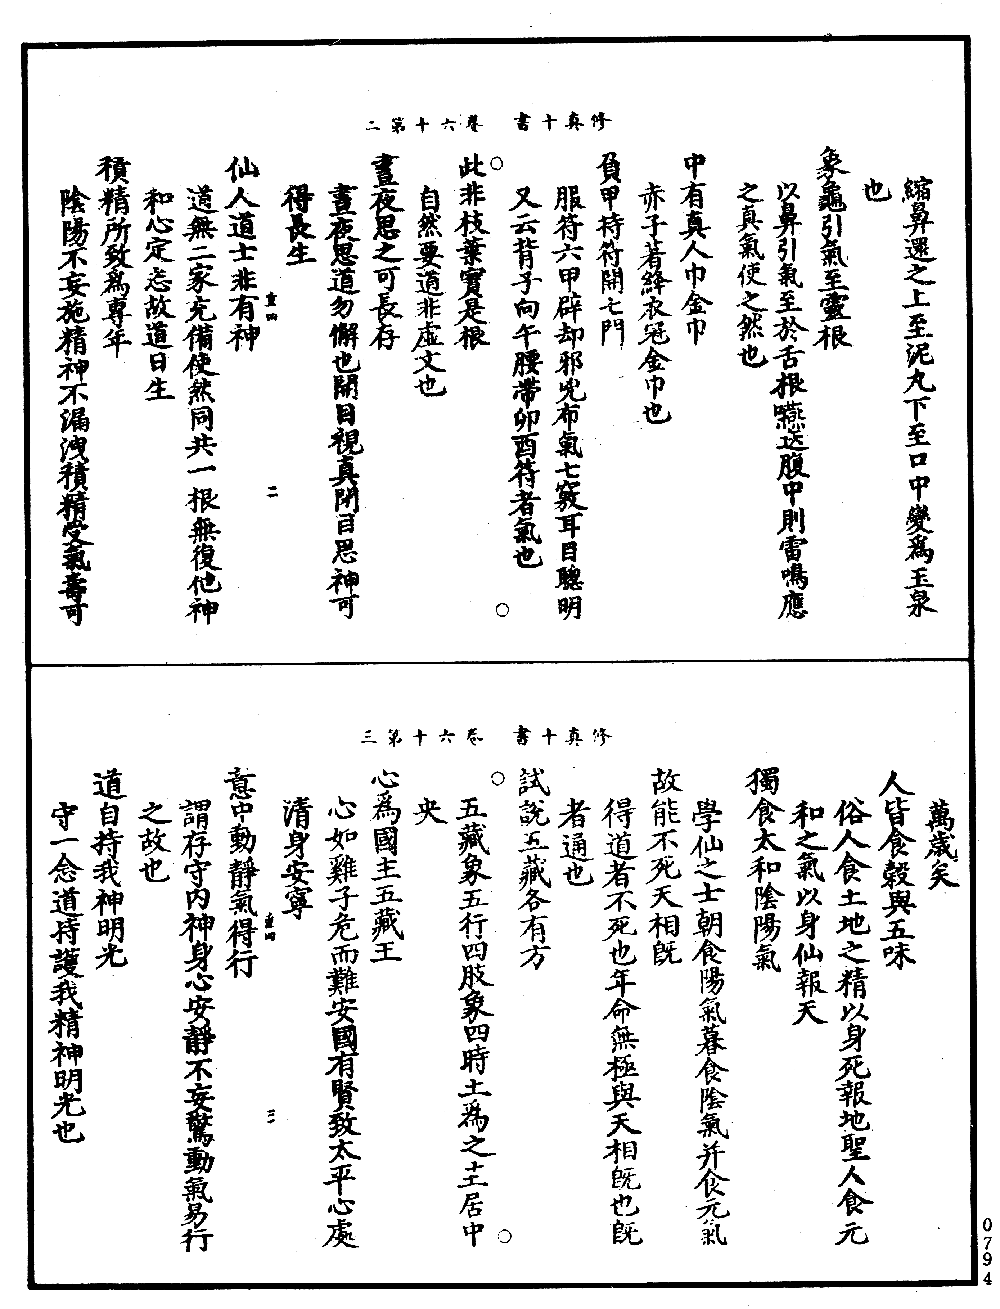 修真十書　卷六十第二
縮鼻還之上至泥丸下至口中變爲玉泉
也
象龜引氣至靈根
以鼻引氣至於舌根嚥送腹中則雷鳴應
之真氣使之然也
中有真人巾金巾
赤子著絳衣冠金巾也
負甲持符開七門
服符六甲辟却邪兇布氣七竅耳目聰明
又云背子向午腰帶卯酉符者氣也
此非枝葉實是根
自然要道非虛文也
晝夜思之可長存
晝夜思道勿懈也開目視真閉目思神可
得長生
仙人道士非有神
道無二家充備使然同共一根無復他神
和心定志故道日生
積精所致爲專年
陰陽不妄施精神不漏洩積精受氣壽可
修真十書　卷六十第三
萬歲矣
人皆食穀與五味
俗人食土地之精以身死報地聖人食元
和之氣以身仙報天
獨食太和陰陽氣
學仙之士朝食陽氣暮食陰氣并食元氣
故能不死天相旣
得道者不死也年命無極與天相旣也旣
者通也
試說五藏各有方
五藏象五行四肢象四時土爲之主居中
央
心爲國主五藏王
心如雞子危而難安國有賢致太平心處
清身安寧
意中動靜氣得行
謂存守內神身心安靜不妄驚動氣易行
之故也
道自持我神明光
守一念道持護我精神明光也
0794